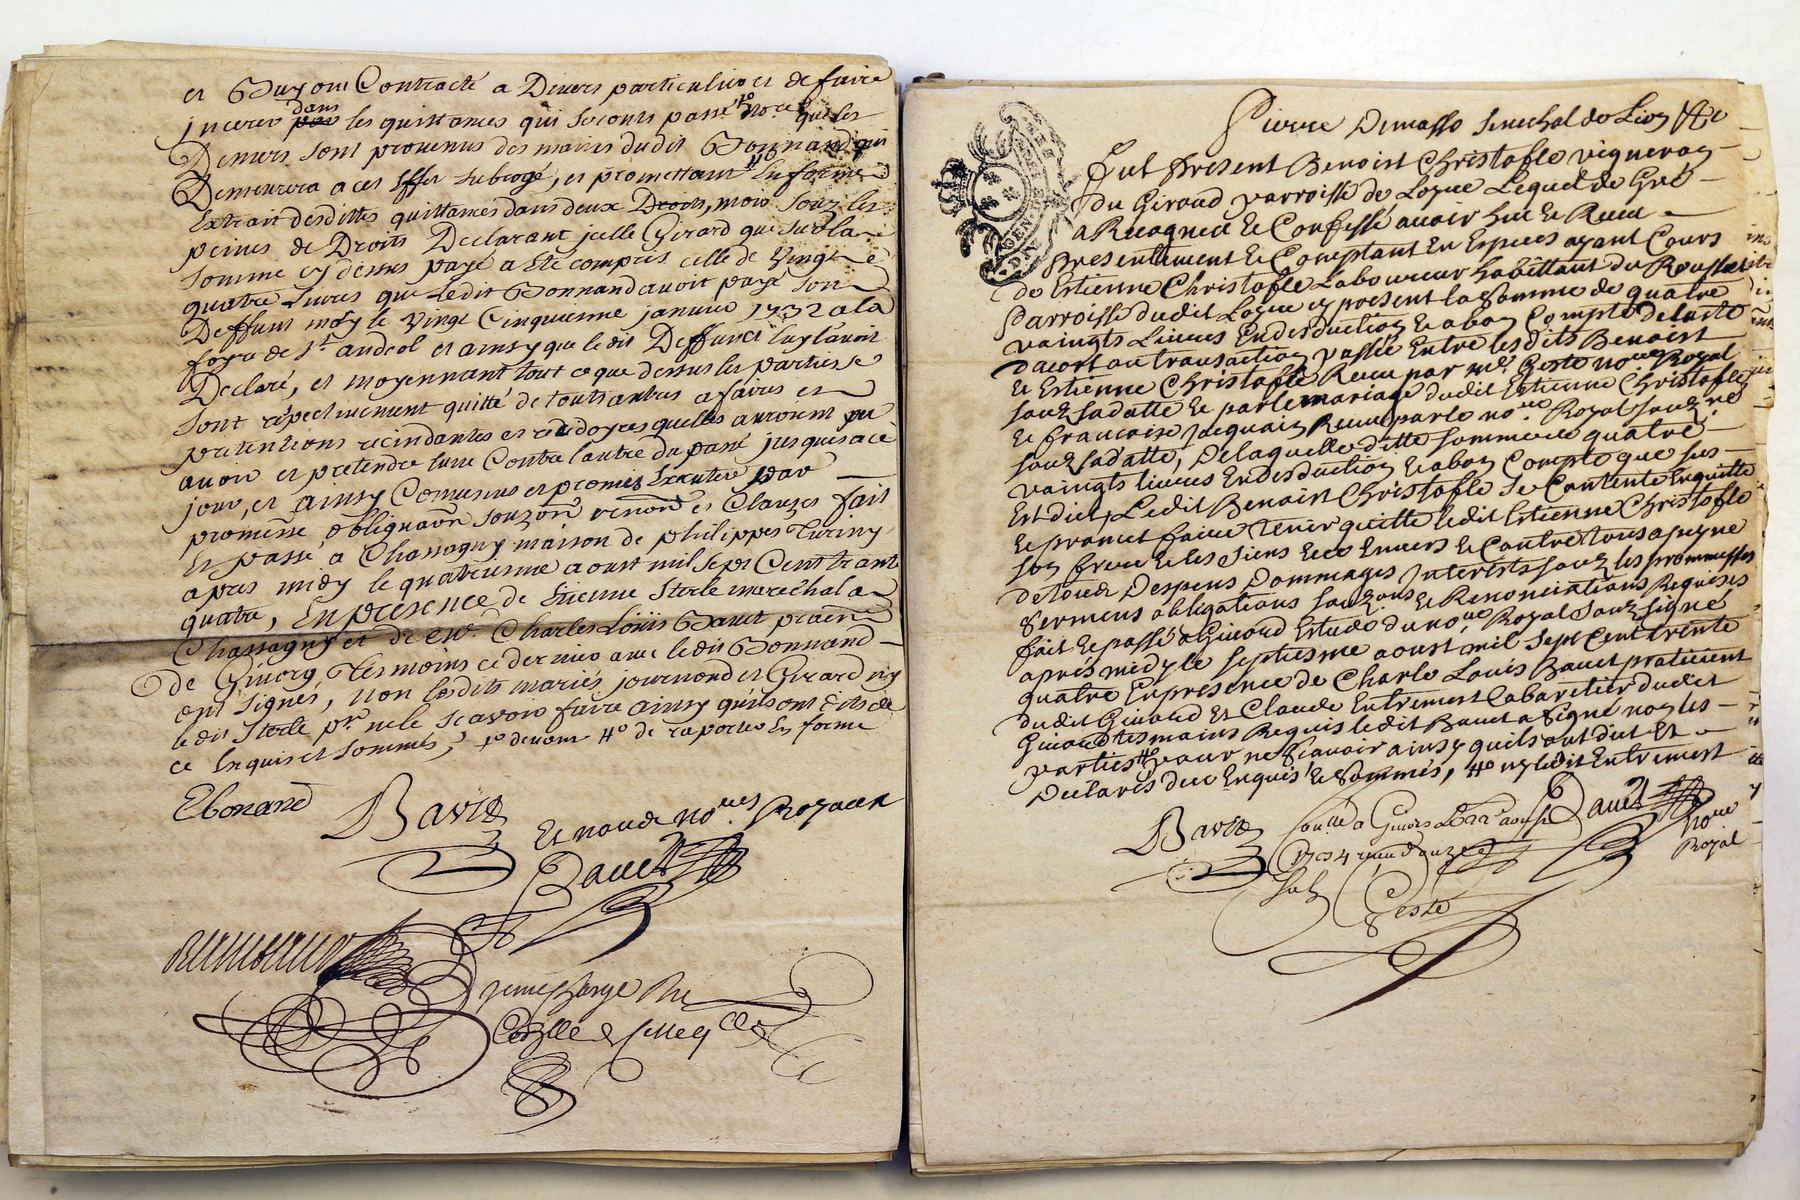 et Guyon Contracté a Divers particuliers et de faire
dans
jncerer par les quittances qui seronts passé que les
Deniers sont provenus des mains dudit Bonnand qui
Demeurera a cet Effet subrogé, et promettant
Extrait desdittes quittances dans deux Droits, mois souz les
peines de Droits Declarant jcelle Girard que sur la
somme cy dessus payé a Eté compris celle de Vingt
quatre livres que ledit Bonnand avoit payé son
Deffunt mary le Vingt Cinquieme janvier 1732 a la
foyre de St andeol et ainsy que le dit Deffunct luy l'avoit
Declaré, et moyennant tout ce que dessus les parties se
sont respectivement quitté de touts autres afaires et
pretentions recindantes et recidoyres quelles auroient pu
avoir et pretendre l'une Contre l'autre du passé jusques a ce
jour, et ainsy Convenus et promis Executer par
promesse obligaon souzon renonon et Clauzes fait
Et passé a Chassagny maison de philippes Turiny
apres midy le quatrieme aoust mil sept Cent trante
quatre, En presence de Etienne Sterle marechal a
Chassagny et de Me. Charles Loüis Bavet praen
de Givors Tesmoins ce dernier avec le dit Bonnand
ont signés, non lesdits mariés journond et Girard ny
ledit Sterle pr ne le scavoir faire ainsy qu'ils ont dits de
ce Enquis et sommés, de raporter En forme
Ebonand
Bavet
Et nous de nores. Royaux
Bavet
Pierre Demasso senechal de Lion &c
fut present Benoist Christofle vigneron
du Giraud parroisse de Lozue Lequel de Gré
a Recogneu et Confessé avoir heu et Receu
presentement et Comptant En Especes ayant Cours
de Estienne Christofle Laboureur habittant du Rousset
Parroisse dudit Lozue cy present la Somme de quatre
vaingts Livres En desduction et a bon Compte de lacte
dacort ou transaction passée Entre lesdits Benoist
et Estienne Christofle Receu par me. Geste nore Royal
souz sa datte et par le mariage dudit Estienne Christofle
et francoise Jacquain Receu par le nore Royal souz né
souz sa datte, De laquelle ditte somme de quatre
vaingts livres En desduction et a bon Compte que sus
Est dict, Ledit Benoist Christofle se Contente En quitte
et promet faire tenir quitte ledit Estienne Christofle
son frere et les siens et ce Envers et Contre tous a peyne
de tous Despens Dommages Interests souz les prommesses
sermens obligations souzons et Renonciations Requises
fait et passé a Givord Estude du nore Royal Souz signé
aprés midy le septiesme aoust mil sept Cent trente
quatre En presence de Charle Louis Bavet praticient
dudit Givord Et Claude Entremont Cabaretier dudit
Givord tesmoins Requis ledit Bavet a signé non les
parties pour ne scavoir ainsy quils ont dit Et
Declarés de ce Enquis et sommés, ny ledit Entremont
Bavet
Conlle a Givors Le 22e aoust
1734 receu douze
sols
Geste
Bavet
nore
Royal